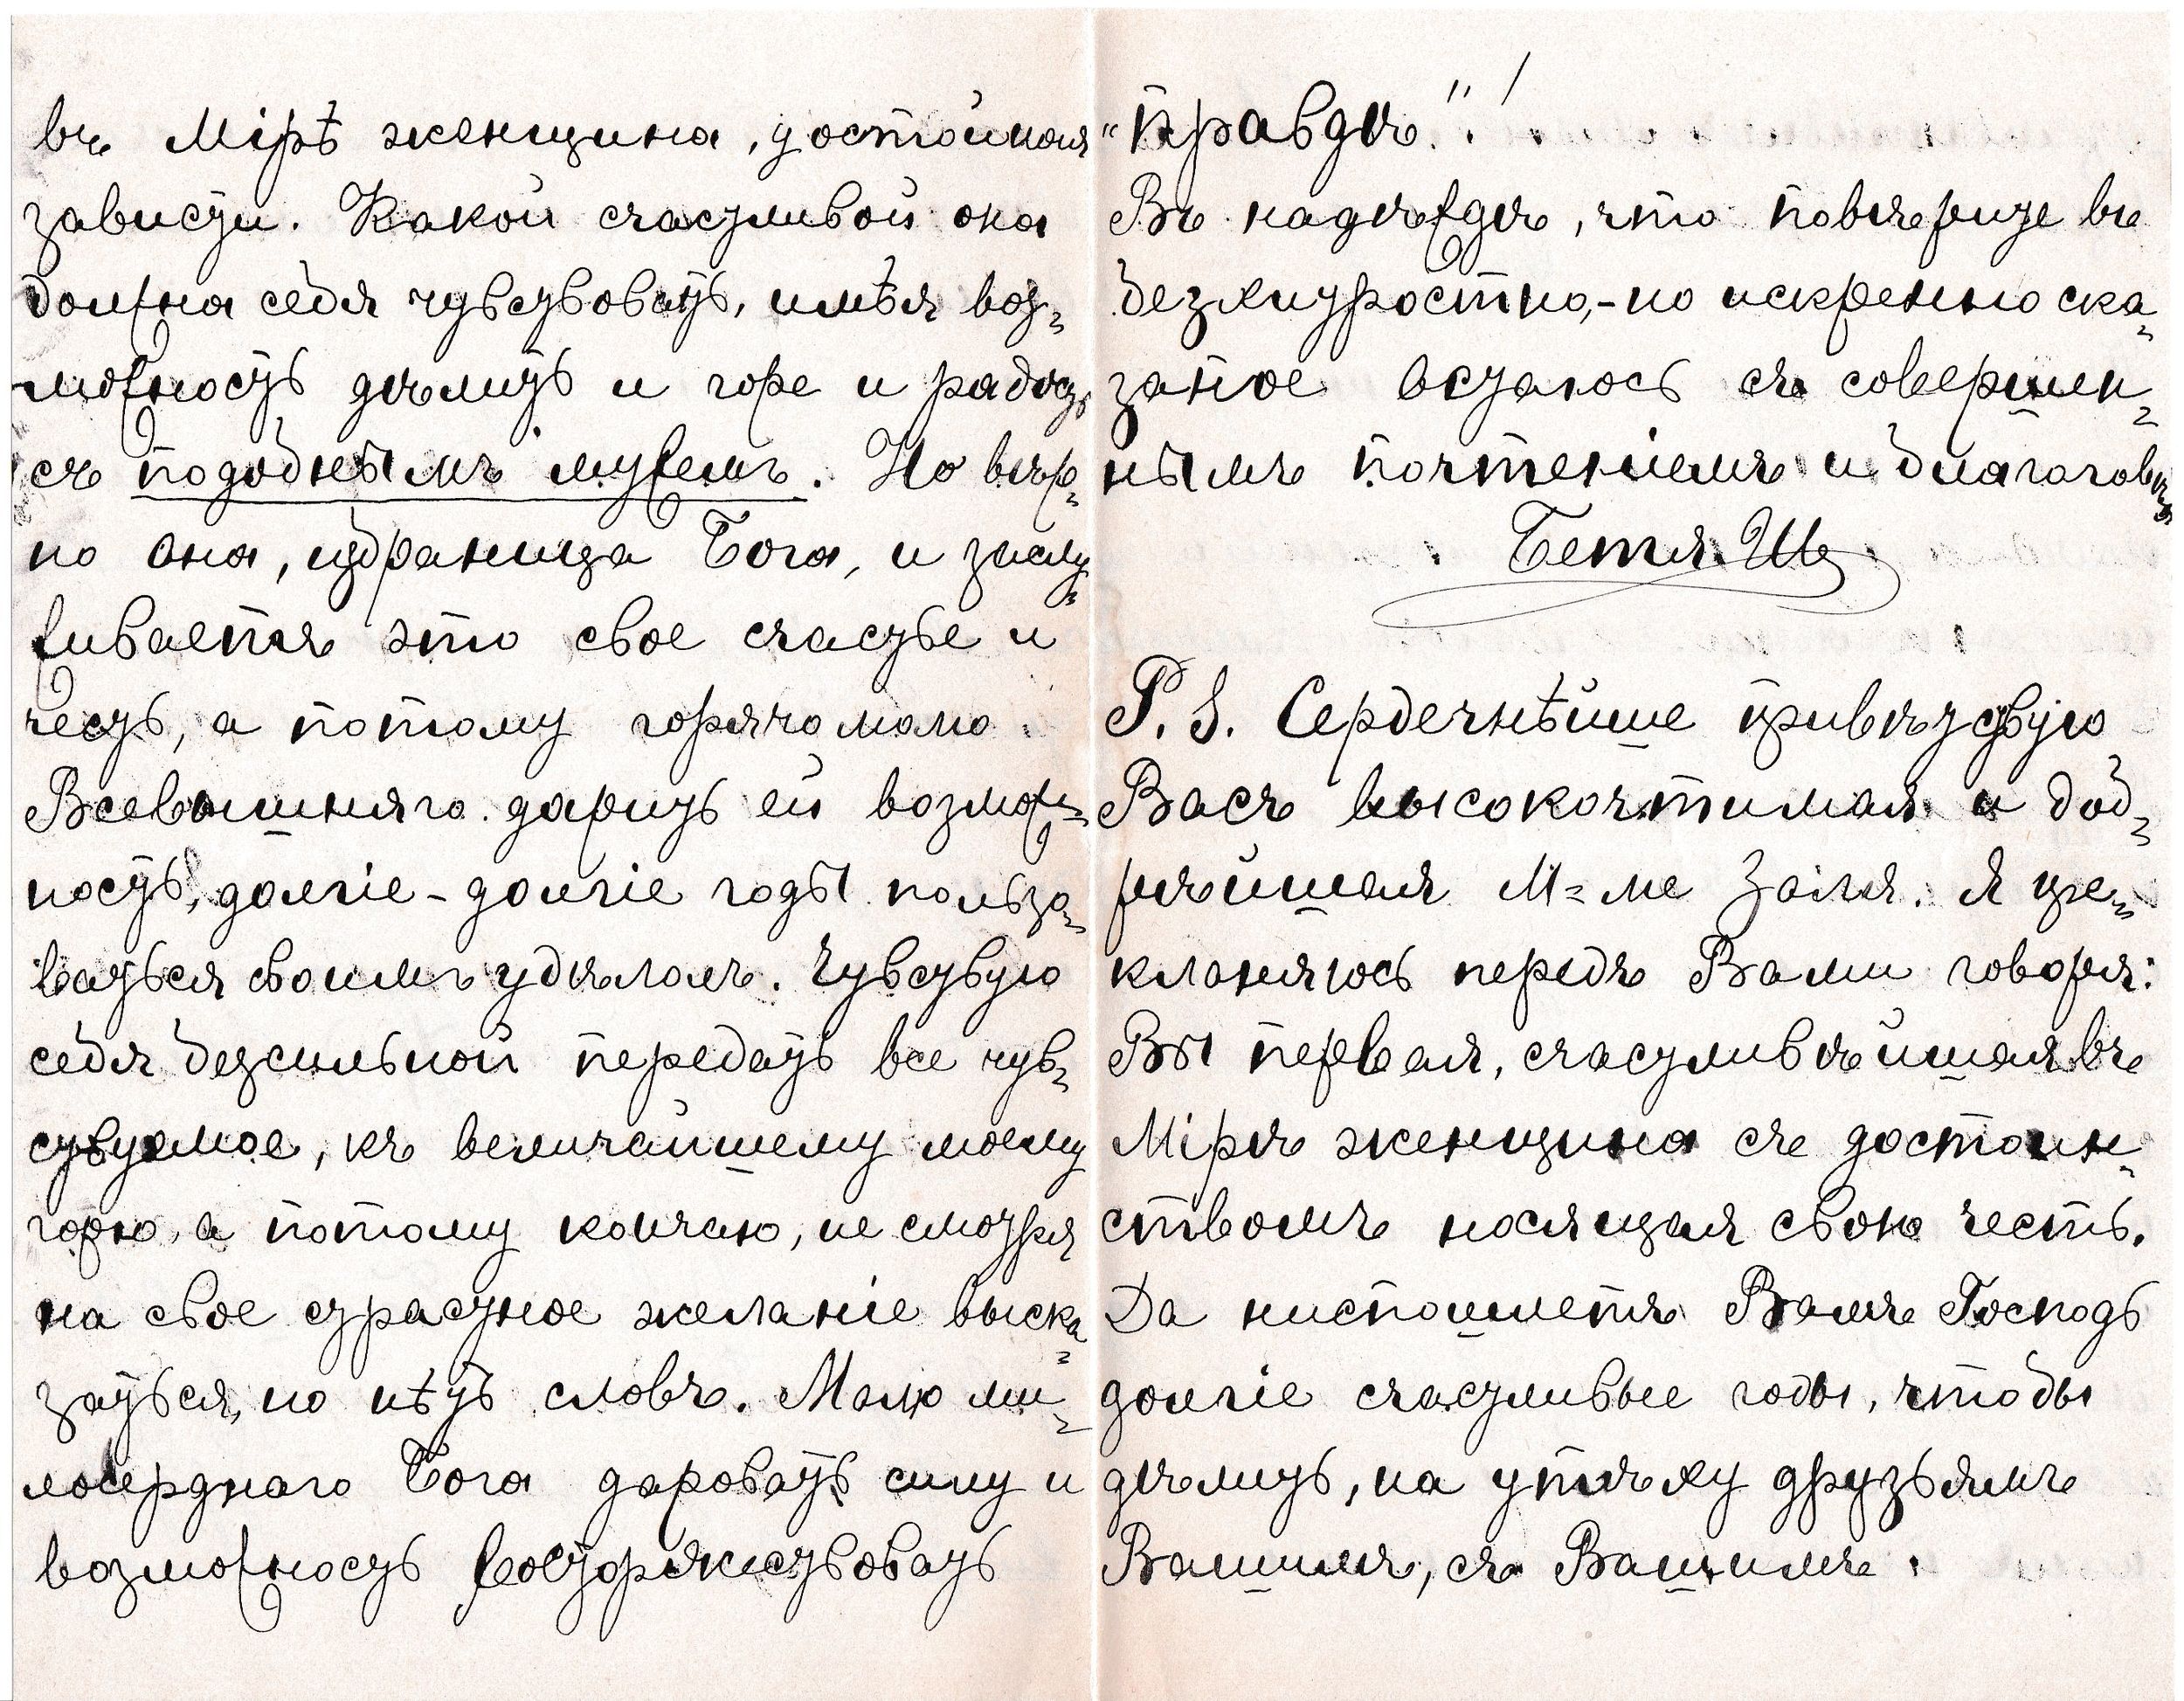 въ Мірѣ женщина, достойная
зависти. Какой счастливой она
должна себя чувствовать, имѣя воз=
можность дѣлить и горе и радость
съ подобнымъ мужемъ. Но вѣр=
но она, избраница Бога, и заслу=
живаетъ это свое счастье и
честь, а потому горячо молю
Всевышняго дарить ей возмож=
ность, долгіе - долгіе годы пользо=
ваться своимъ удѣломъ. Чувствую
себя безсильной передать все чув=
ствуемое, къ величайшему моему
горю, а потому кончаю, не смотря
на свое страстное желаніе выска=
заться, но нѣтъ словъ. Молю ми=
лосерднаго Бога даровать силу и
возможность восторжествовать
"Правдѣ"!
Въ надѣждѣ, что повѣрите въ
безхитростно,- но искренно ска=
заное остаюсь съ совершен=
нымъ почтеніемъ и благоговѣ
Бетя Ш
P. S. Сердечнѣйше привѣтствую
Васъ высокочтимая и доб=
рѣйшая М=ме Золя. Я пре=
клоняюсь передъ Вами говоря:
Вы первая, счастливѣйшая въ
Мірѣ женщина съ достоин=
ствомъ носящая свою честь.
Да ниспошлетъ Вамъ Господь
долгіе счастливые годы, чтобы
дѣлить, на утѣху друзьямъ
Вашимъ, съ Вашимъ